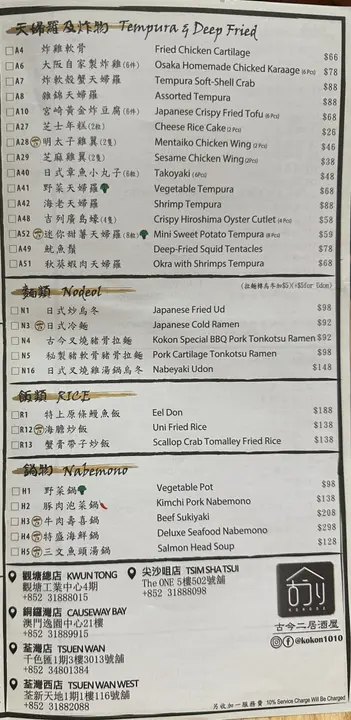 天婦羅及炸物 Tempura & Deep Fried
A4 炸雞軟骨 Fried Chicken Cartilage $66
A6 大阪自家製炸雞(6件) Osaka Homemade Chicken Karaage (6 Pcs) $78
A7 炸軟殼蟹天婦羅 Tempura Soft-Shell Crab $88
A8 雜錦天婦羅 Assorted Tempura $88
A10 宮崎黃金炸豆腐(6件) Japanese Crispy Fried Tofu (6 Pcs) $68
A27 芝士年糕(2粒) Cheese Rice Cake (2 Pcs) $26
A28 明太子雞翼(2隻) Mentaiko Chicken Wing (2 Pcs) $46
A29 芝麻雞翼(2隻) Sesame Chicken Wing (2Pcs) $38
A40 日式章魚小丸子(6粒) Takoyaki (6Pcs) $48
A41 野菜天婦羅 Vegetable Tempura $68
A42 海老天婦羅 Shrimp Tempura $88
A48 吉列廣島蠔(4隻) Crispy Hiroshima Oyster Cutlet (4 Pcs) $58
A52 迷你甜薯天婦羅(8粒) Mini Sweet Potato Tempura (8 Pcs) $59
A49 魷魚鬚 Deep-Fried Squid Tentacles $78
A51 秋葵蝦肉天婦羅 Okra with Shrimps Tempura $68
麵類 Nodeol (拉麵轉烏冬加$5)(+$5for Udon)
N1 日式炒烏冬 Japanese Fried Ud $98
N3 日式冷麵 Japanese Cold Ramen $92
N4 古今叉燒豬骨拉麵 Kokon Special BBQ Pork Tonkotsu Ramen $92
N5 秘製豬軟骨豬骨拉麵 Pork Cartilage Tonkotsu Ramen $98
N16 日式叉燒雞湯鍋烏冬 Nabeyaki Udon $148
飯類 RICE
R1 特上原條鰻魚飯 Eel Don $188
R12 海膽炒飯 Uni Fried Rice $138
R13 蟹膏帶子炒飯 Scallop Crab Tomalley Fried Rice $138
鍋物 Nabemono
H1 野菜鍋 Vegetable Pot $98
H2 豚肉泡菜鍋 Kimchi Pork Nabemono $138
H3 牛肉壽喜鍋 Beef Sukiyaki $208
H4 特盛海鮮鍋 Deluxe Seafood Nabemono $298
H5 三文魚頭湯鍋 Salmon Head Soup $128
觀塘總店 KWUN TONG
觀塘工業中心4期
+852 31888015
銅鑼灣店 CAUSEWAY BAY
澳門逸園中心21樓
+852 31889915
荃灣店 TSUEN WAN
千色匯1期3樓3013號舖
+852 34801384
荃灣西店 TSUEN WAN WEST
荃新天地1期1樓116號舖
+852 31882088
尖沙咀店 TSIM SHA TSUI
The ONE 5樓502號舖
+852 31888098
古今二居酒屋
@kokon1010
另收加一服務費 10% Service Charge Will Be Charged